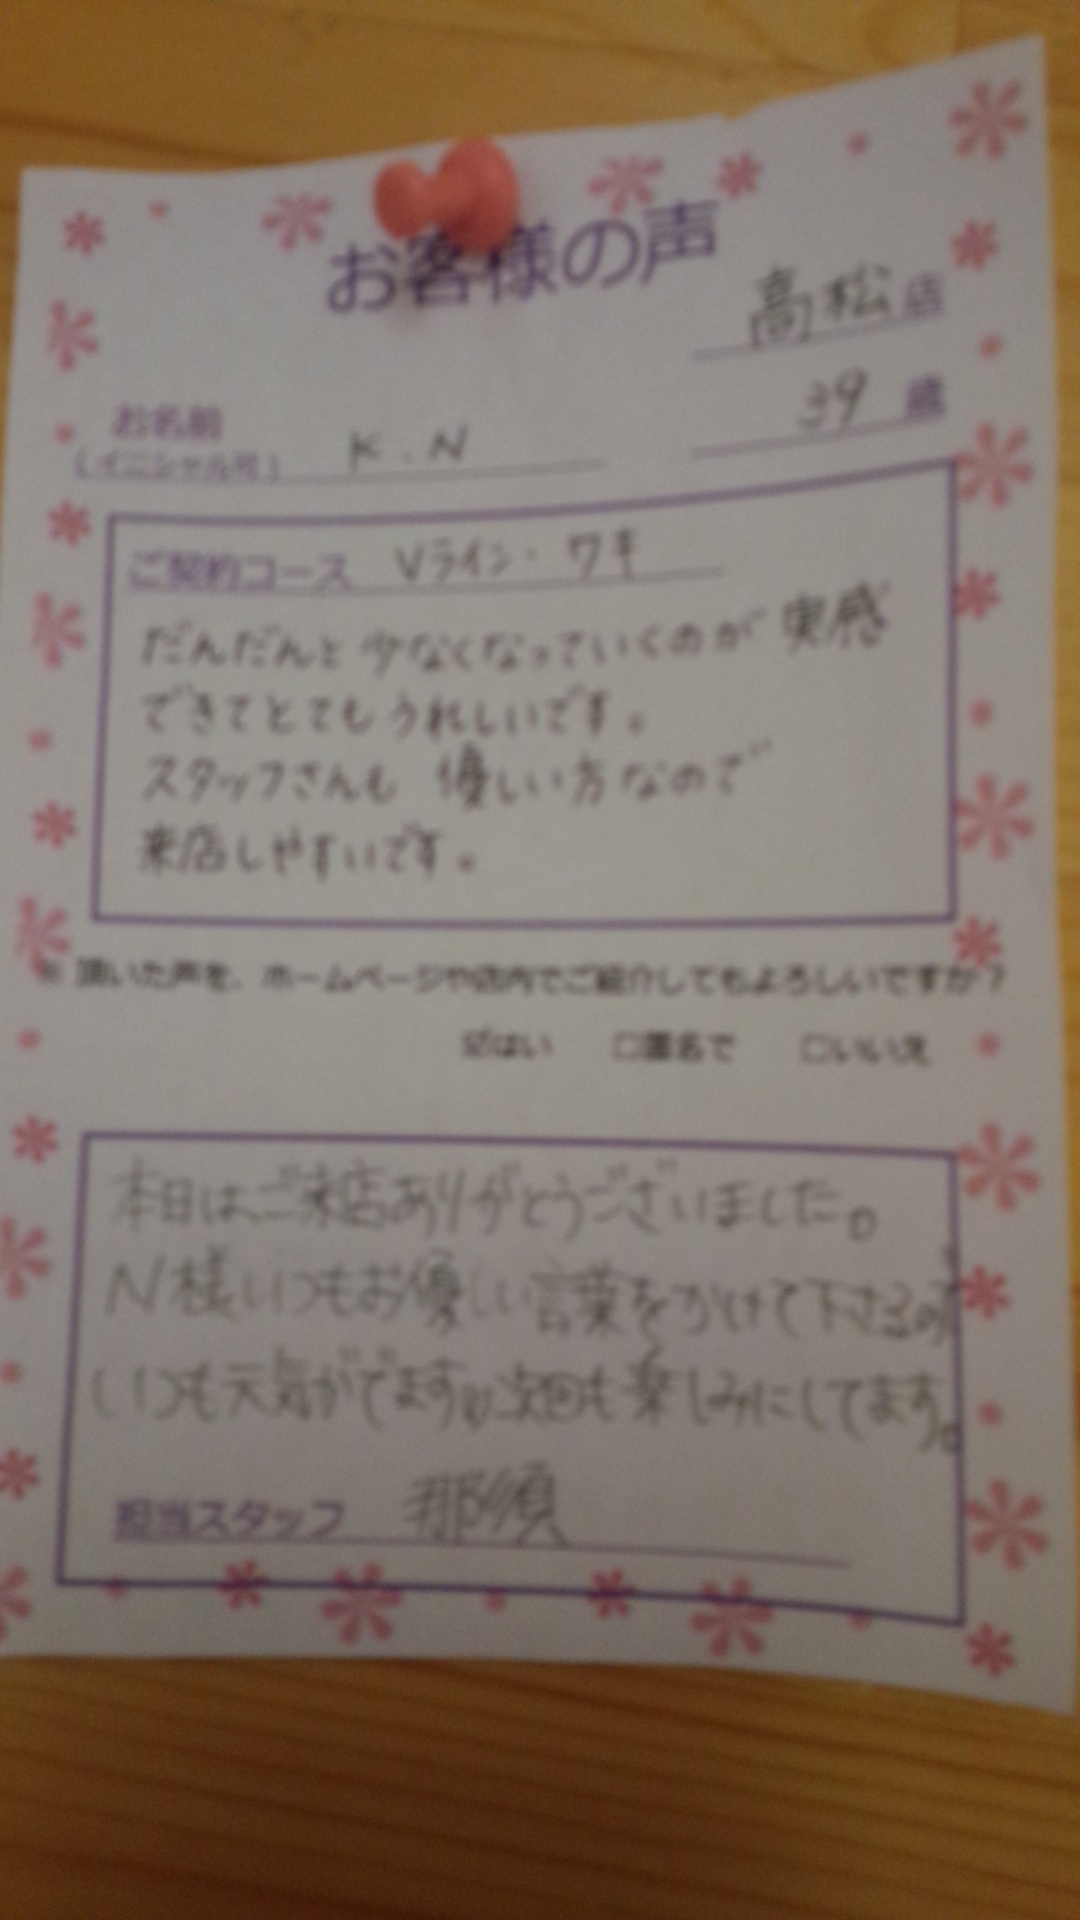 お客様の声
高松店
お名前
(イニシャル可) K.N 39 歳
ご契約コース Vライン・ワキ
だんだんと少なくなっていくのが実感
できてとてもうれしいです。
スタッフさんも優しい方なので
来店しやすいです。
※頂いた声を、ホームページや店内でご紹介してもよろしいですか?
☑はい □匿名で □いいえ
本日はご来店ありがとうございました。
N様いつもお優しい言葉をかけて下さるので
いつも元気がでます。次回も楽しみにしてます。
担当スタッフ 那須